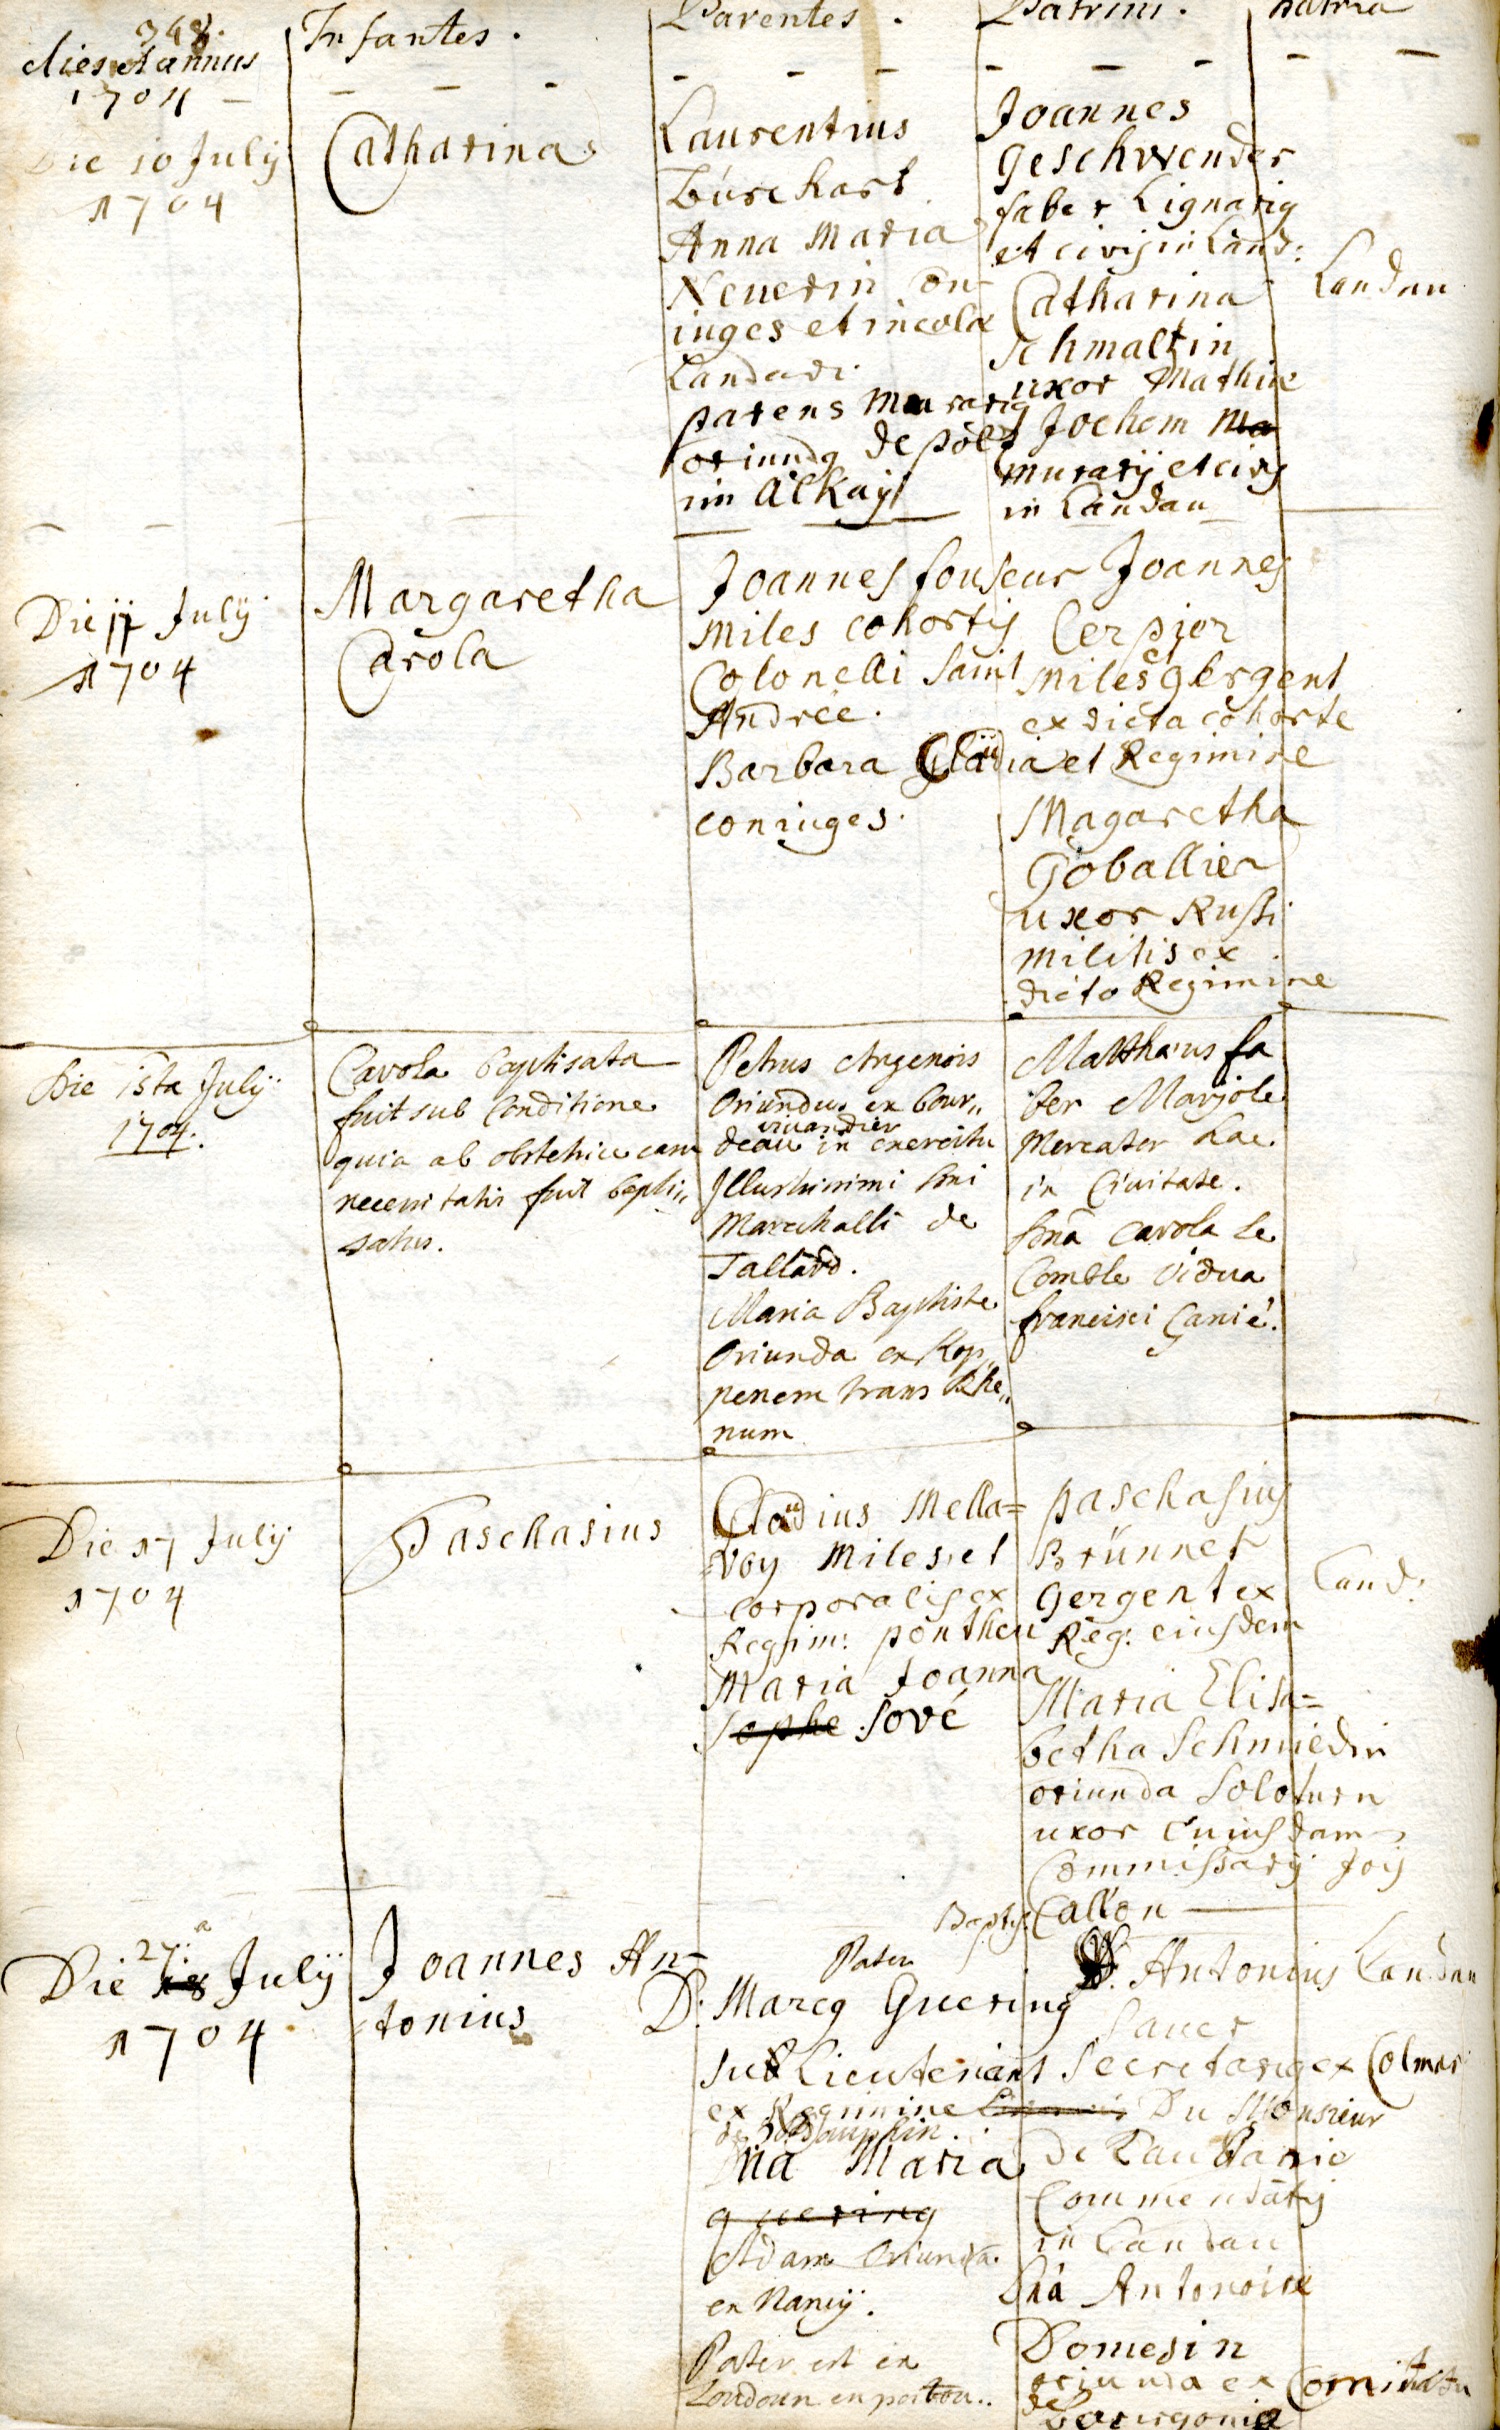 348.
dies et annus
1704
Infantes.
Parentes.
Patrini.
patria
Die 10 July
1704
Catharina
Laurentius
Burckart
Anna Maria
Neuerin con
iuges et incolæ
Landavi.
parens murarig
oriundg de
im
Joannes
Geschwender
faber Lignarig
et civis in Land:
Catharina
Schmaltin
uxor Mathiæ
Jochem
murarij et civis
in Landau
Landau
Die 11 July
1704
Margaretha
Carola
Joannes fouseur
miles cohortis
Colonelli Saint
Andrée.
Barbara Claudia
coniuges.
Joannes
Cerpior
miles gergent
ex dicta cohorte
et Regimine
Magaretha
Goballier
uxor Russi
militis ex
dicto Regimine
Die 15ta July
1704.
Carola baptisata
fuit sub Conditione
quia ab obstetrice casu
necessitatis fuit bapti„
satus.
Petrus Argenois
Oriundus ex bour„
deau vivandier in exercitu
Illustrissimi Dni
Mareschalli de
Tallard.
Maria Baptiste
Oriunda ex Kop„
penem trans Rhe„
num
Matthæus fa
ber Marjole
Mercator hac
in Civitate.
Dna Carola Le
Comble Vidua
francisci Ganié.
Die 17 July
1704
Paschasius
Claudius Mella=
=voy Miles et
corporalis ex
Regim: pontheu
Maria Joanna
Sophe Sové
paschasius
Brünnet
Gergent ex
Reg: eiusdem
Maria Elisa=
betha Schmiedin
oriunda Soloturn
uxor Cuiusdam
Commissarij Jois
Baptis. Callon
Land:
Die 27.a 18 July
1704
Joannes An-
tonius
Pater
D: Marcg Guering
sub Lieutenant
ex Regimine
de Dauphin.
Dna Maria
guering
Adam Oriunda
ex Nancij.
Pater est ex
Loudoun en poitou..
D. Antonius
Sauer
Secretarig ex Colmar
Du Monsieur
de Laubanie
Commendatis
in Landau
Dna Antonoise
Domesin
oriunda ex Comitatu
de Bourgonie
Landau